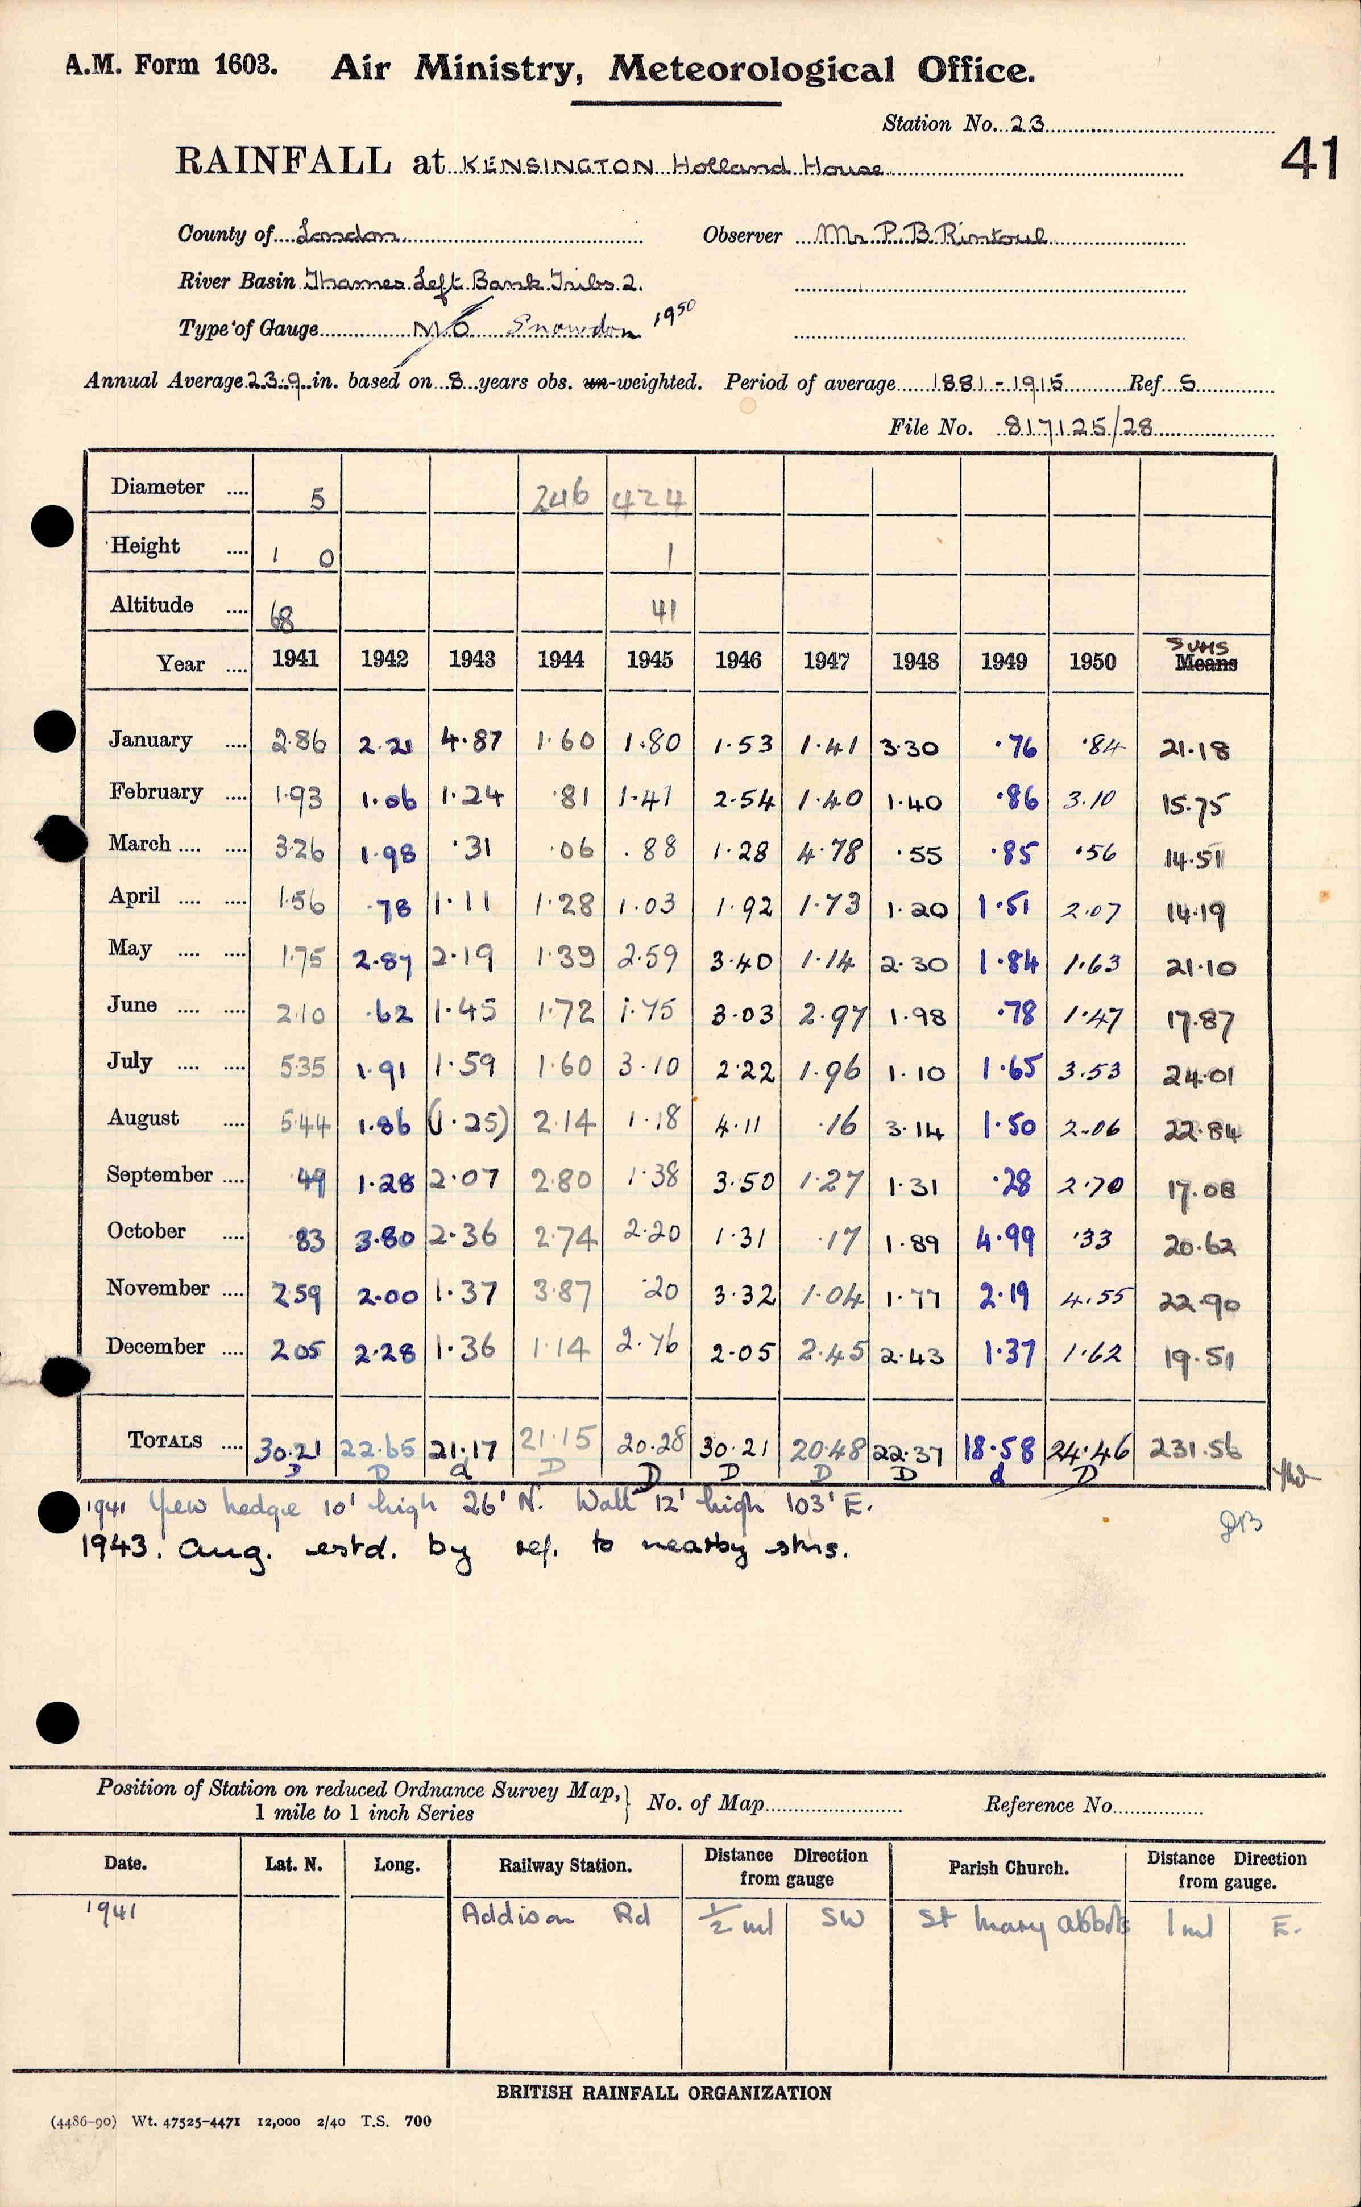 A.M. Form 1603. Air Ministry, Meteorological Office.
Station No. 23
41
RAINFALL at KENSINGTON Holland House
County of London Observer Mr P. B. Rintoul
River Basin Thames Left Bank Tribs 2.
Type of Gauge M/O Snowdon 1950
Annual Average 23.9 in. based on 8 years obs. un-weighted. Period of average 1881-1915 Ref S
File No. 817125/28
Diameter .... 5 246 424
Height .... 1 0 1
Altitude .... 68 41
SUMS
Year .... 1941 1942 1943 1944 1945 1946 1947 1948 1949 1950 Means
January .... 2.86 2.21 4.87 1.60 1.80 1.53 1.41 3.30 .76 .84 21.18
February .... 1.93 1.06 1.24 .81 1.41 2.54 1.40 1.40 .86 3.10 15.75
March .... .... 3.26 1.98 .31 .06 .88 1.28 4.78 .55 .85 .56 14.51
April .... .... 1.56 .78 1.11 1.28 1.03 1.92 1.73 1.20 1.51 2.07 14.19
May .... .... 1.75 2.87 2.19 1.39 2.59 3.40 1.14 2.30 1.84 1.63 21.10
June .... .... 2.10 .62 1.45 1.72 1.75 3.03 2.97 1.98 .78 1.47 17.87
July .... .... 5.35 1.91 1.59 1.60 3.10 2.22 1.96 1.10 1.65 3.53 24.01
August .... 5.44 1.86 (1.25) 2.14 1.18 4.11 .16 3.14 1.50 2.06 22.84
September .... .49 1.28 2.07 2.80 1.38 3.50 1.27 1.31 .28 2.70 17.08
October .... .83 3.80 2.36 2.74 2.20 1.31 .17 1.89 4.99 .33 20.62
November .... 2.59 2.00 1.37 3.87 .20 3.32 1.04 1.77 2.19 4.55 22.90
December .... 2.05 2.28 1.36 1.14 2.76 2.05 2.45 2.43 1.37 1.62 19.51
TOTALS .... 30.21 22.65 21.17 21.15 20.28 30.21 20.48 22.37 18.58 24.46 231.56
D D d D D D D D d D
1941 Yew hedge 10' high 26' N. Wall 12' high 103' E.
1943. Aug. estd. by ref. to nearby stns.
Position of Station on reduced Ordnance Survey Map,
1 mile to 1 inch Series
No. of Map Reference No.
Date. Lat. N. Long. Railway Station. Distance Direction from gauge Parish Church. Distance Direction from gauge.
1941 Addison Rd ½ ml SW St Mary Abbots 1 ml E.
BRITISH RAINFALL ORGANIZATION
(4486-90) Wt. 47525-4471 12,000 2/40 T.S. 700